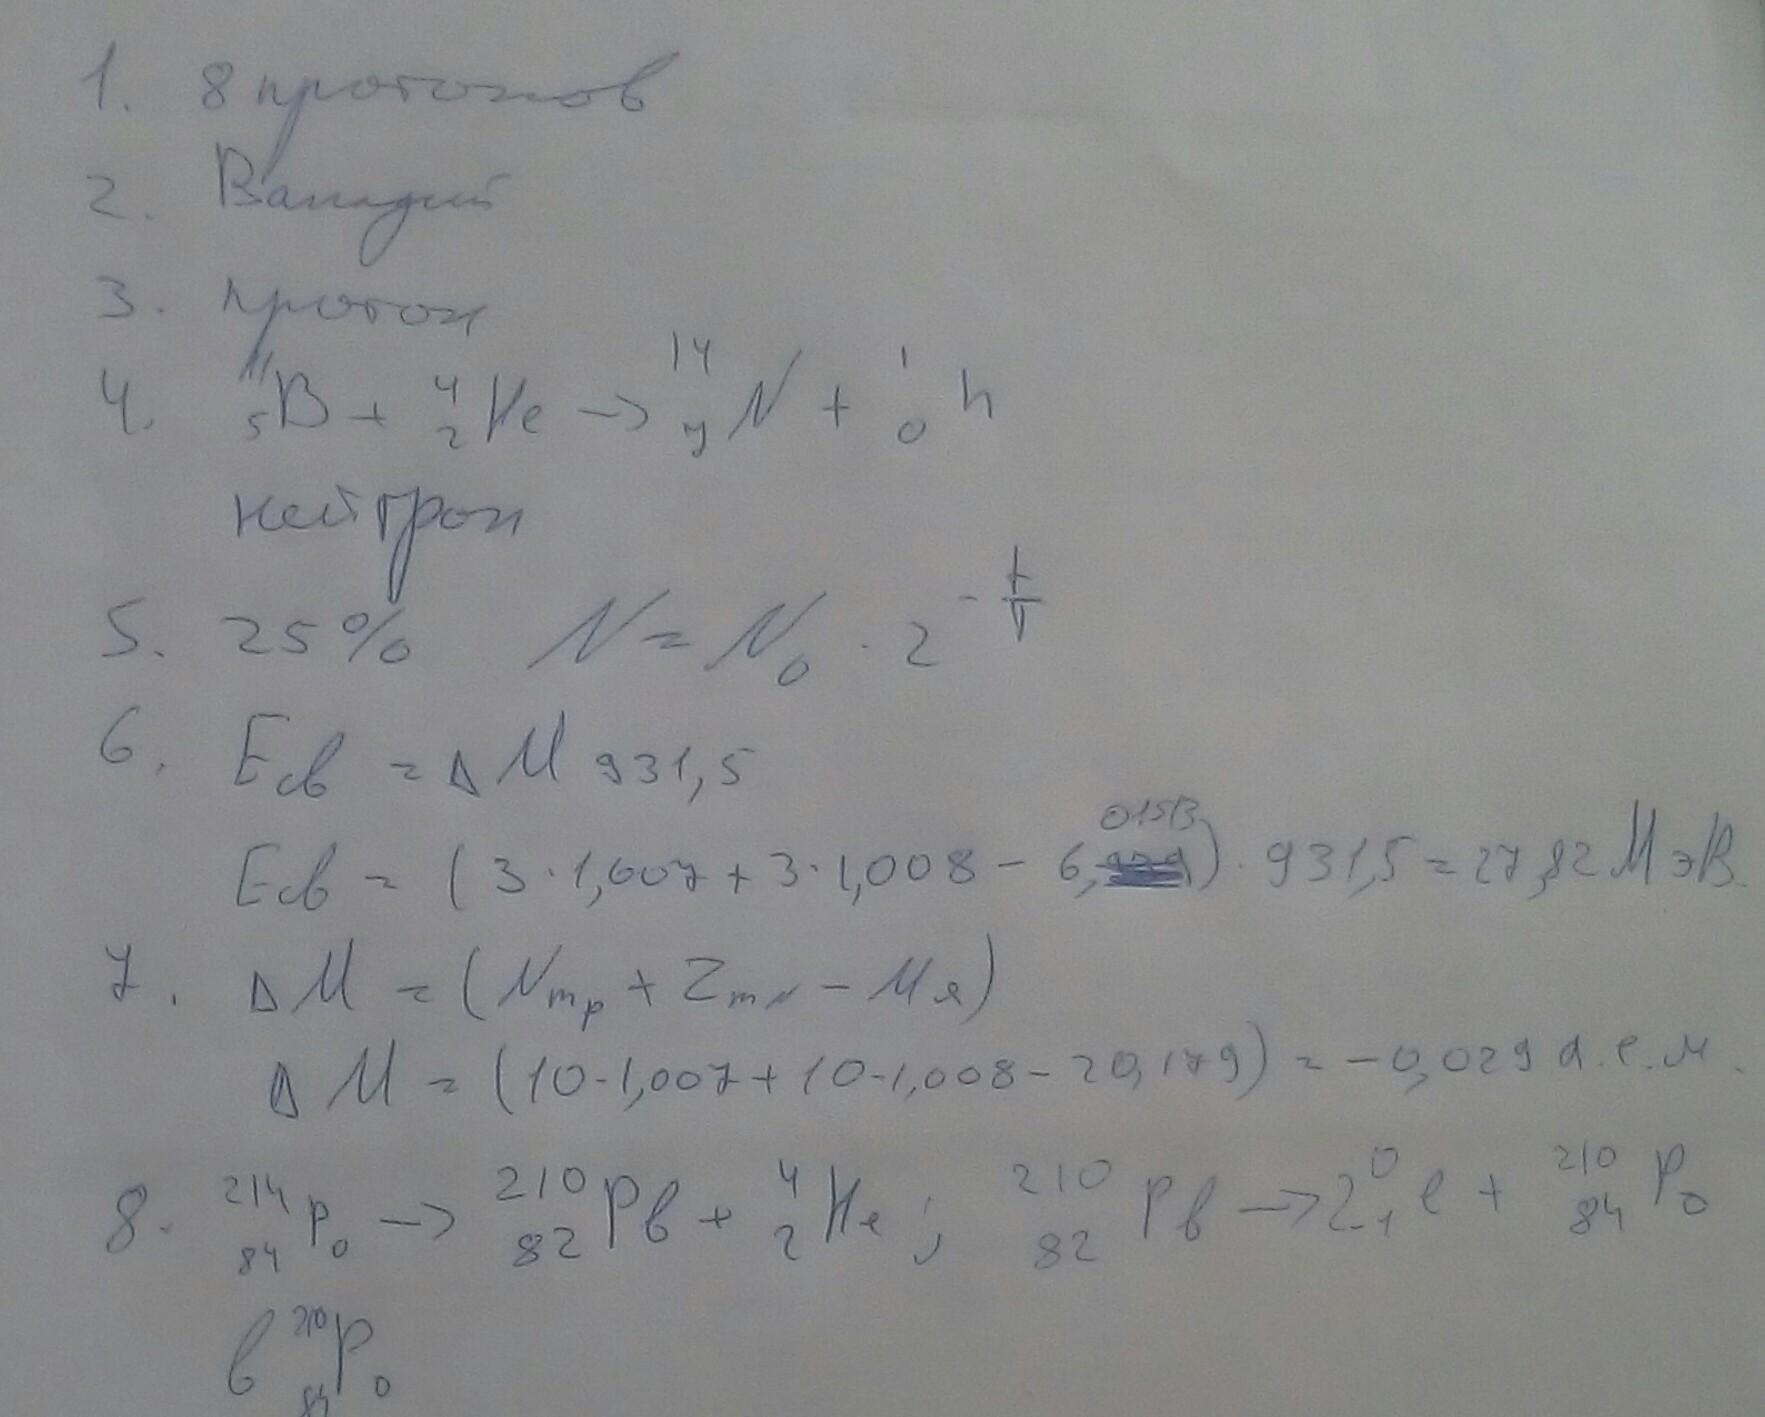 1. 8 протонов
2. Ванадий
3. протон
4. ¹¹₅B + ⁴₂He → ¹⁴₇N + ¹₀n
нейтрон
5. 25% N = N₀ · 2^(-t/T)
6. Eсв = ΔM 931,5
Eсв = (3·1,007 + 3·1,008 - 6,01513) · 931,5 = 27,82 МэВ.
7. ΔM = (Nmp + Zmn - Mя)
ΔM = (10·1,007 + 10·1,008 - 20,179) = -0,029 а.е.м.
8. ²¹⁴₈₄Po → ²¹⁰₈₂Pb + ⁴₂He ; ²¹⁰₈₂Pb → 2⁰₋₁e + ²¹⁰₈₄Po
в ²¹⁰₈₄Po